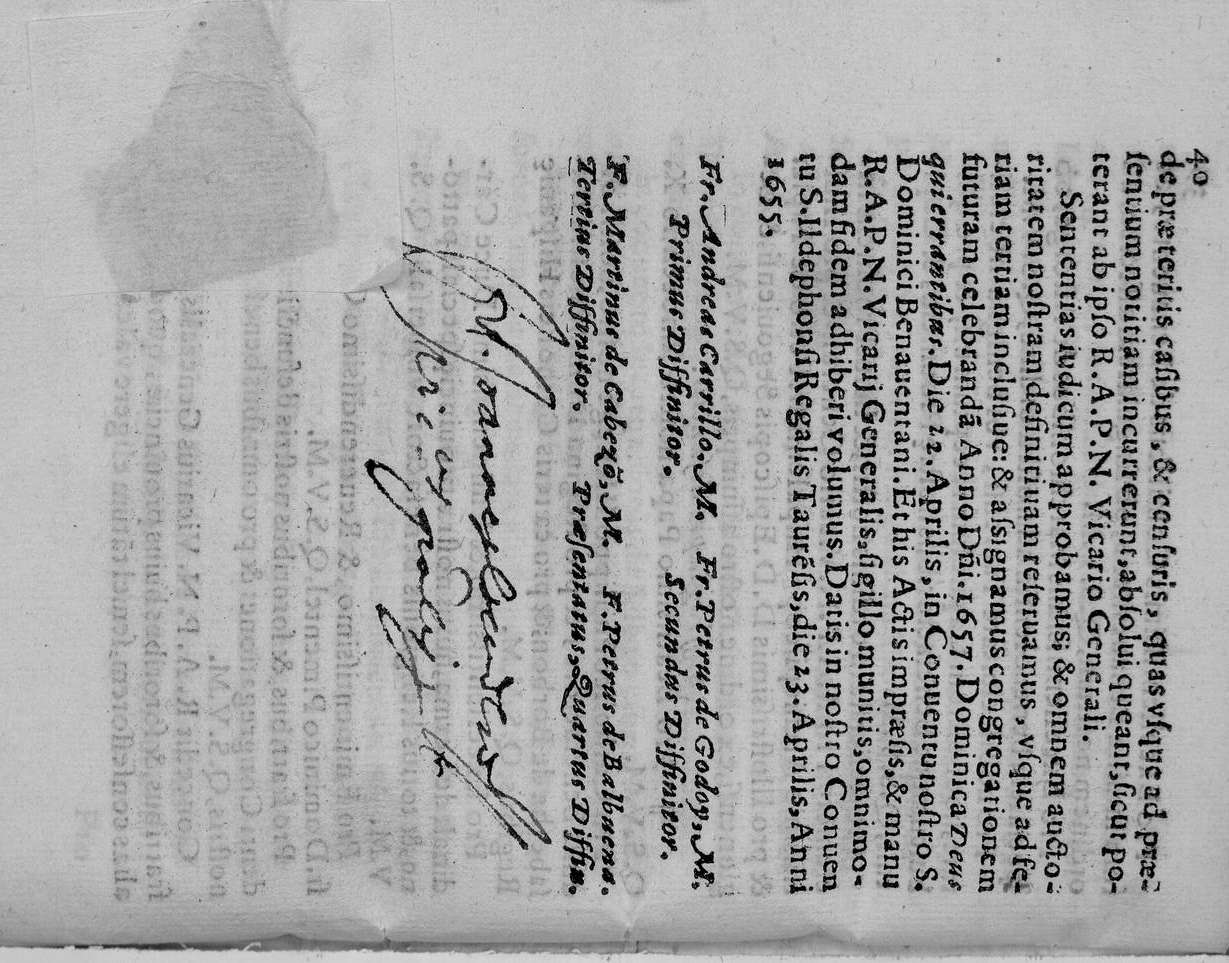 40
de præteritis casibus, & censuris, quas vsque ad præ-
sentium notitiam incurrerunt, absolui queant, sicut po-
terant ab ipso R. A. P. N. Vicario Generali.
Sententias iudicum approbamus; & omnem aucto-
ritatem nostram definitiuam reseruamus, vsque ad fe-
riam tertiam inclusiue: & assignamus congregationem
futuram celebrandā Anno Dñi. 1657. Dominica Deus
qui errantibus. Die 22. Aprilis, in Conuentu nostro S.
Dominici Benauentani. Et his Actis impræsis, & manu
R. A. P. N. Vicarij Generalis, sigillo munitis, omnimo-
dam fidem adhiberi volumus. Datis in nostro Conuen
tu S. Ildephonsi Regalis Taurēsis, die 23. Aprilis, Anni
1655.
Fr. Andreas Carrillo. M. Fr. Petrus de Godoy, M.
Primus Diffinitor. Secundus Diffinitor.
F. Martinus de Cabezō, M. F. Petrus de Balbuena.
Tertius Diffinitor. Præsentatus, Quartus Diffin.